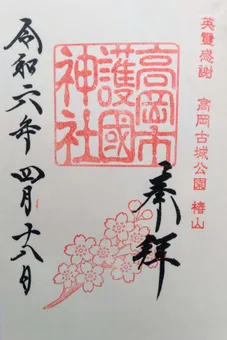 英霊感謝　高岡古城公園　椿山
奉拝
高岡市
護國
神社
令和六年四月十六日